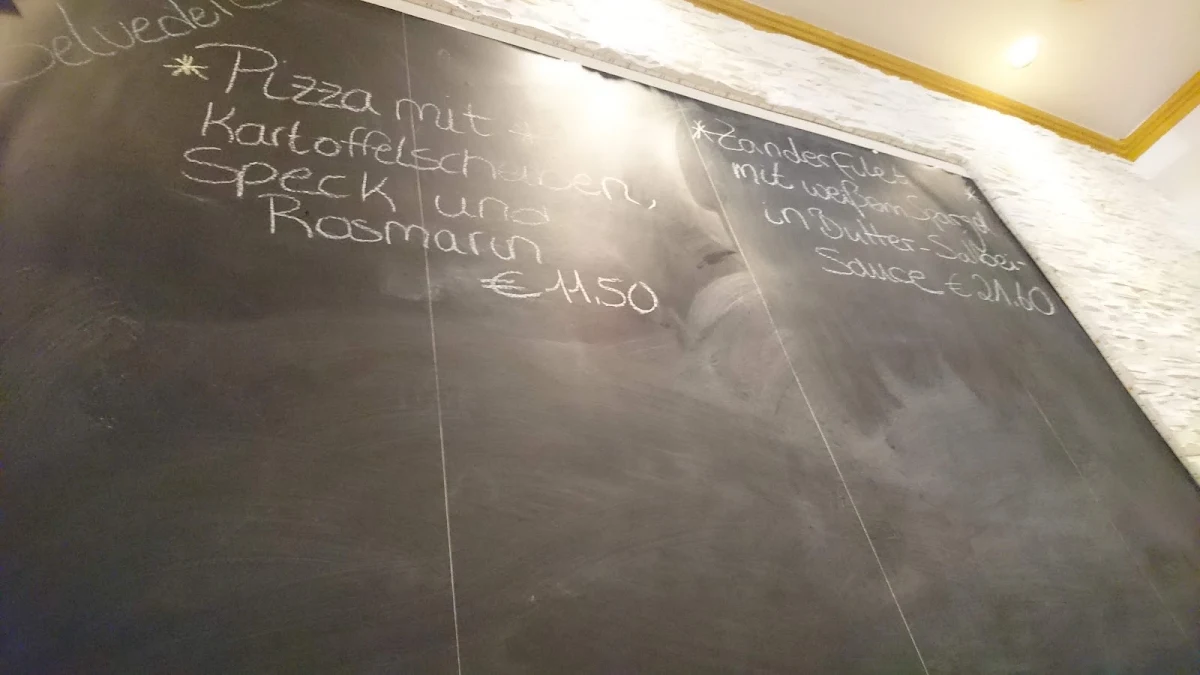 Belvedere
* Pizza mit
Kartoffelscheiben,
Speck und
Rosmarin
€ 11.50
* Zanderfilet
mit weißem Spargel
in Butter-Salbei-
Sauce € 21.60